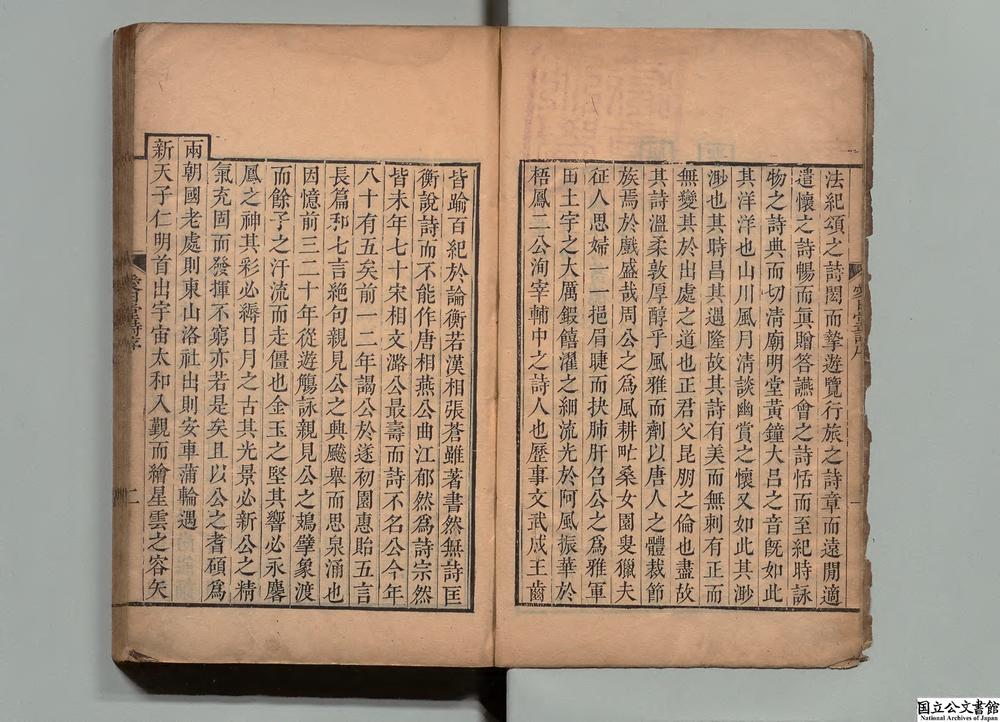 法紀頌之詩閎而摯遊覽行旅之詩章而遠閒適
遣懷之詩暢而眞贈答讌會之詩恬而至紀時詠
物之詩典而切清廟明堂黃鐘大呂之音旣如此
其洋洋也山川風月清談幽賞之懷又如此其渺
渺也其時昌其遇隆故其詩有美而無刺有正而
無變其於出處之道也正君父昆朋之倫也盡故
其詩溫柔敦厚醇乎風雅而劑以唐人之體裁節
族焉於戲盛哉周公之爲風耕甿桑女園叟獵夫
征人思婦一一挹眉睫而抉肺肝召公之爲雅軍
田土宇之大厲鍛饎濯之細流光於阿風振華於
梧鳳二公洵宰輔中之詩人也歷事文武成王齒
皆踰百紀於論衡若漢相張蒼雖著書然無詩匡
衡說詩而不能作唐相燕公曲江郁然爲詩宗然
皆未年七十宋相文潞公最壽而詩不名公今年
八十有五矣前一二年謁公於遂初園惠貽五言
長篇和七言絕句親見公之典飈舉而思泉涌也
因憶前三二十年從遊觴詠親見公之鴂擘象渡
而餘子之汗流而走僵也金玉之堅其響必永麐
鳳之神其彩必縟日月之古其光景必新公之精
氣充固而發揮不窮亦若是矣且以公之耆碩爲
兩朝國老處則東山洛社出則安車蒲輪遇
新天子仁明首出宇宙太和入覲而繪星雲之容矢
二
国立公文書館
National Archives of Japan